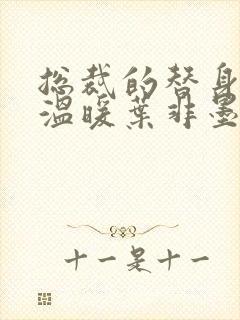 总裁的替身
温暖叶非墨
十一是十一